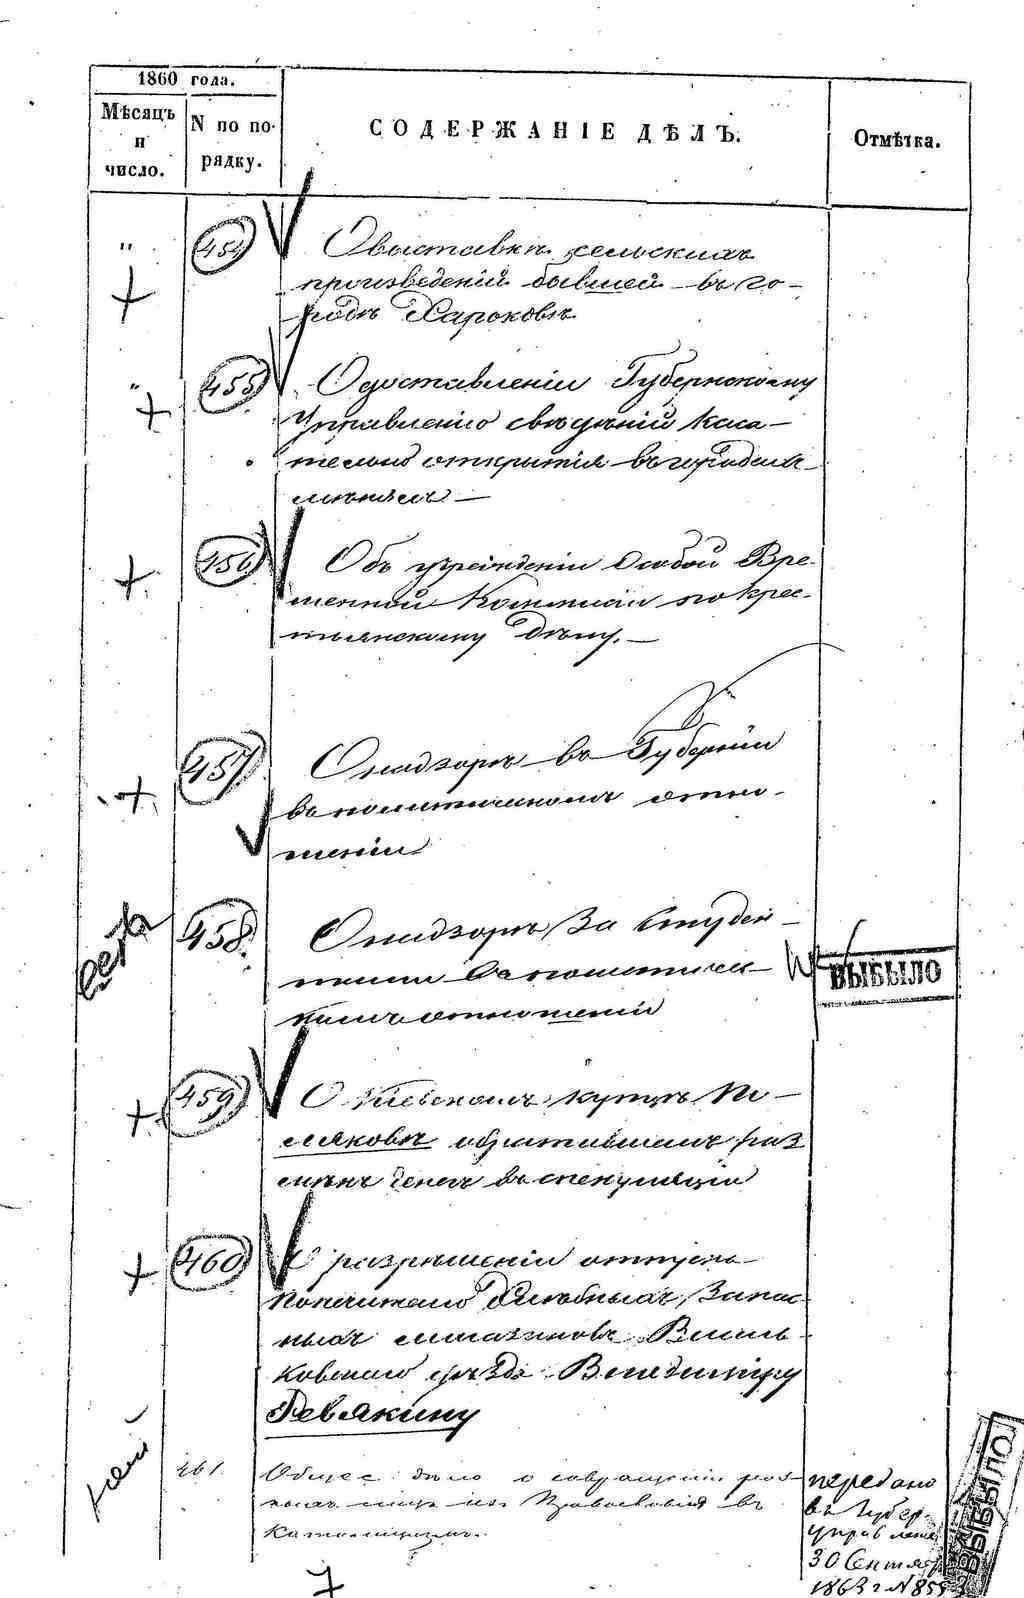 1860 года.
Мѣсяцъ и число.
N по порядку.
СОДЕРЖАНІЕ ДѢЛЪ.
Отмѣтка.
" 454 О выставкѣ сельскихъ
произведеній бывшей въ го-
родѣ Харьковѣ
" 455 О доставленіи Губернскому
Управленію свѣдѣній каса-
тельно открытія въ городахъ
456 Объ учрежденіи Особой Вре-
менной Коммисіи по крес-
тьянскому дѣлу.
457 О надзорѣ въ Губерніи
въ политическомъ отно-
шеніи
458 О надзорѣ за студен-
тами въ политичес-
комъ отношеніи
ВЫБЫЛО
459 О Кіевскомъ купцѣ По-
ляковѣ обратившемъ раз
мѣнъ денегъ въ спекуляцію
460 О разрѣшеніи отпуска
хлѣбныхъ запас-
ныхъ магазиновъ Василь-
ковскаго уѣзда Владиміру
Ревякину
461. Общее дѣло о совращеніи раз-
ныхъ лицъ изъ Православія въ
Католицизмъ.
передано
въ Губер.
управленіе
30 Сентяб
1863 г N 855
ВЫБЫЛО
нет
7